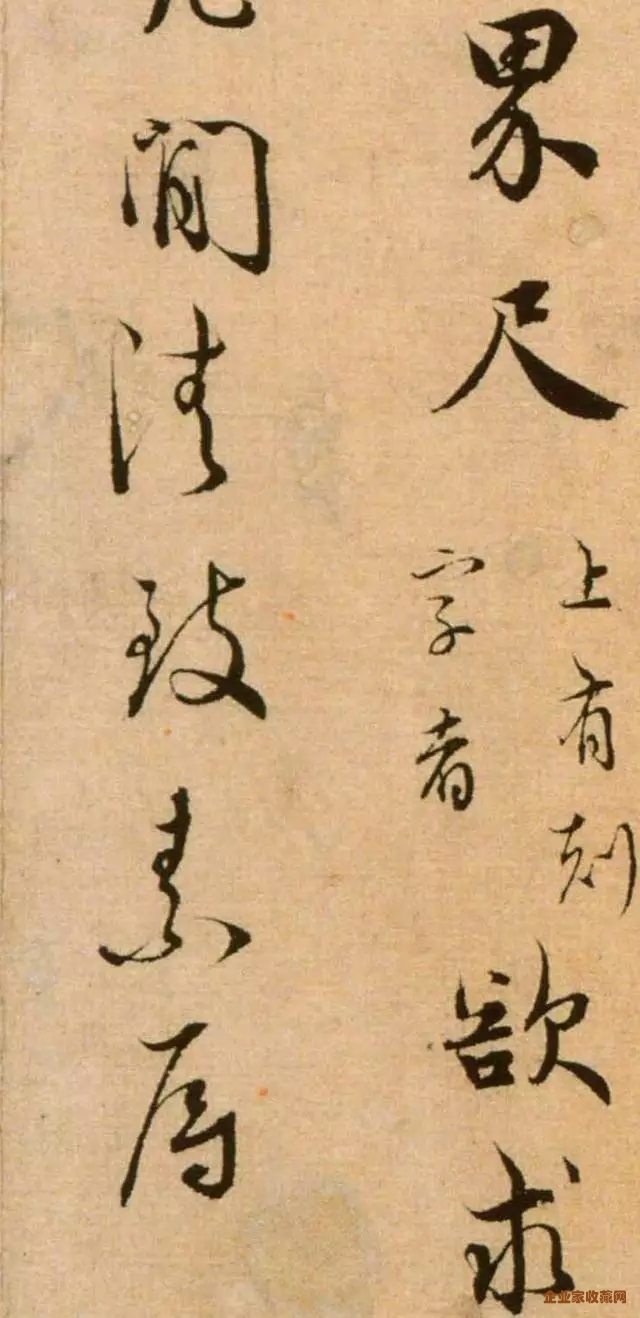 界尺
上有刻
字者
欲求
閒清致素局
企业家收藏网